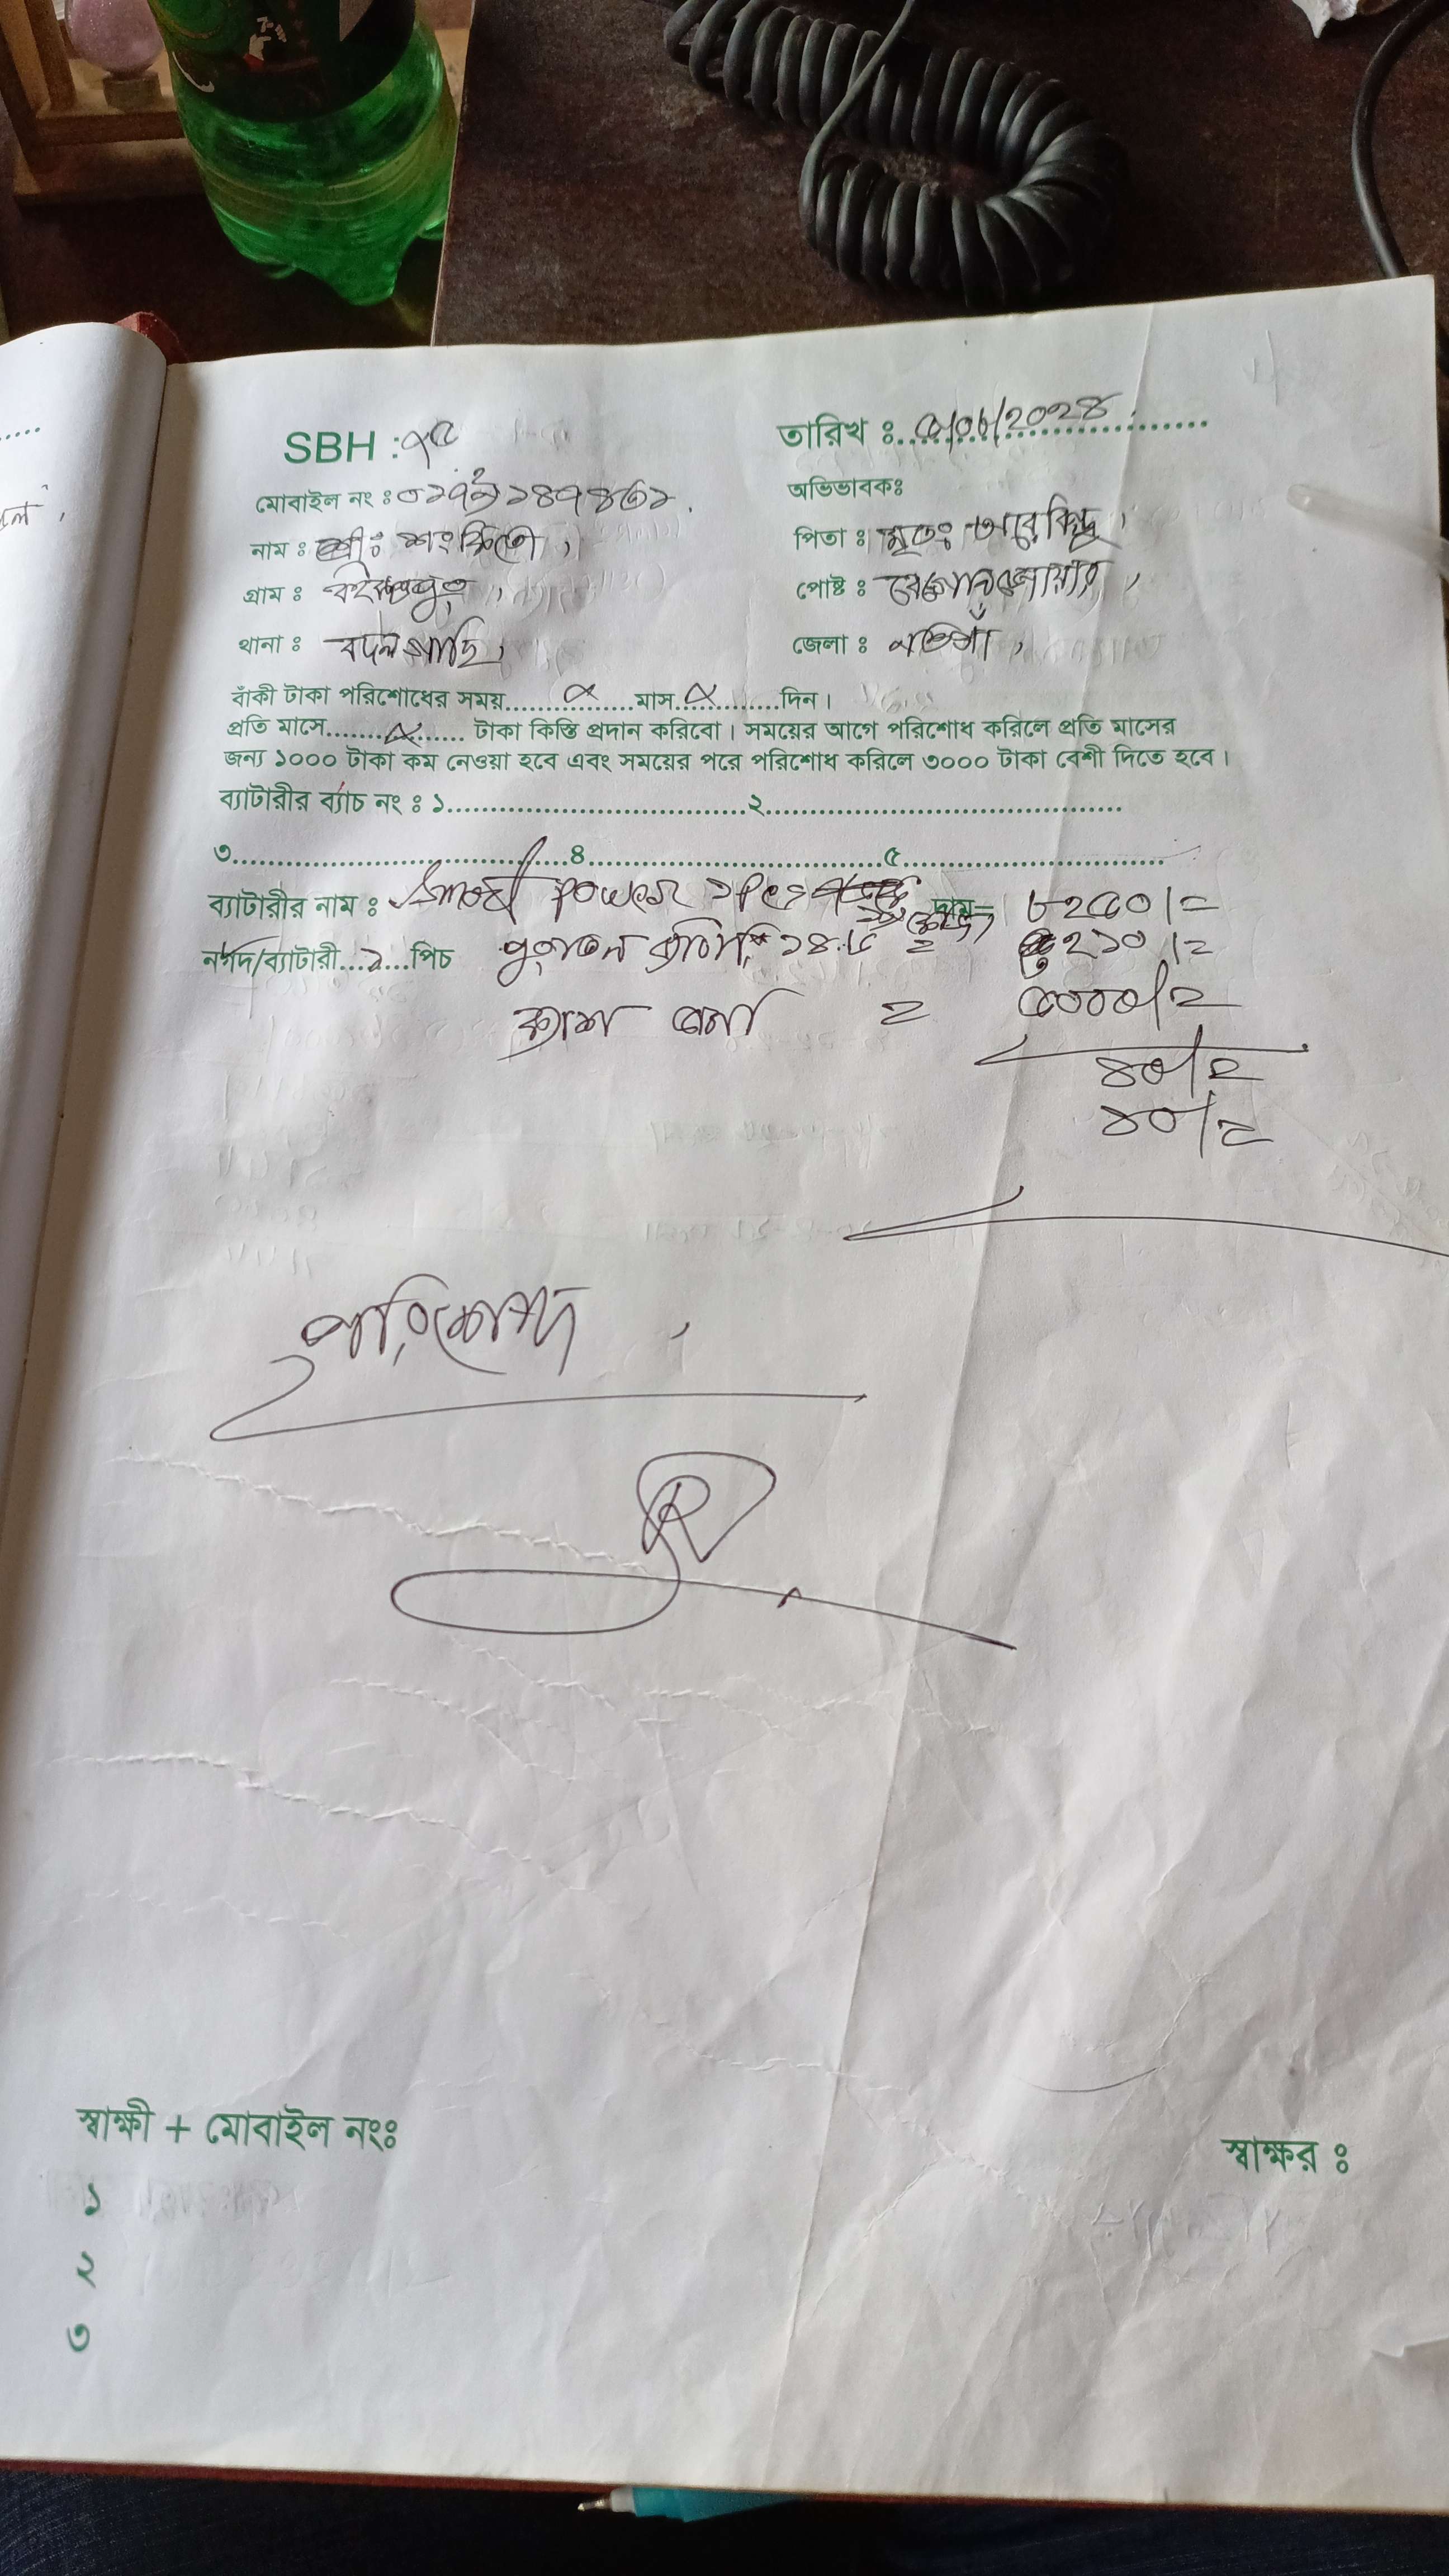 SBH : ৭৫
তারিখ ঃ ৫/০৮/২০২৪
মোবাইল নং ঃ
অভিভাবকঃ
নাম ঃ শ্রীঃ
পিতা ঃ মৃতঃ
গ্রাম ঃ
পোষ্ট ঃ
থানা ঃ বদলগাছি,
জেলা ঃ নওগাঁ,
বাঁকী টাকা পরিশোধের সময়..............মাস..............দিন।
প্রতি মাসে.............. টাকা কিস্তি প্রদান করিবো। সময়ের আগে পরিশোধ করিলে প্রতি মাসের
জন্য ১০০০ টাকা কম নেওয়া হবে এবং সময়ের পরে পরিশোধ করিলে ৩০০০ টাকা বেশী দিতে হবে।
ব্যাটারীর ব্যাচ নং ঃ ১..............২..............
৩..............৪..............৫..............
ব্যাটারীর নাম ঃ Smart Power ১Pes দাম= ৮২৫০/=
নগদ/ব্যাটারী...১...পিচ পুরাতন = ৩২১০/=
ক্যাশ জমা = ৫০০০/=
৪০/=
৪০/=
পরিশোধ
স্বাক্ষী + মোবাইল নংঃ
স্বাক্ষর ঃ
১
২
৩